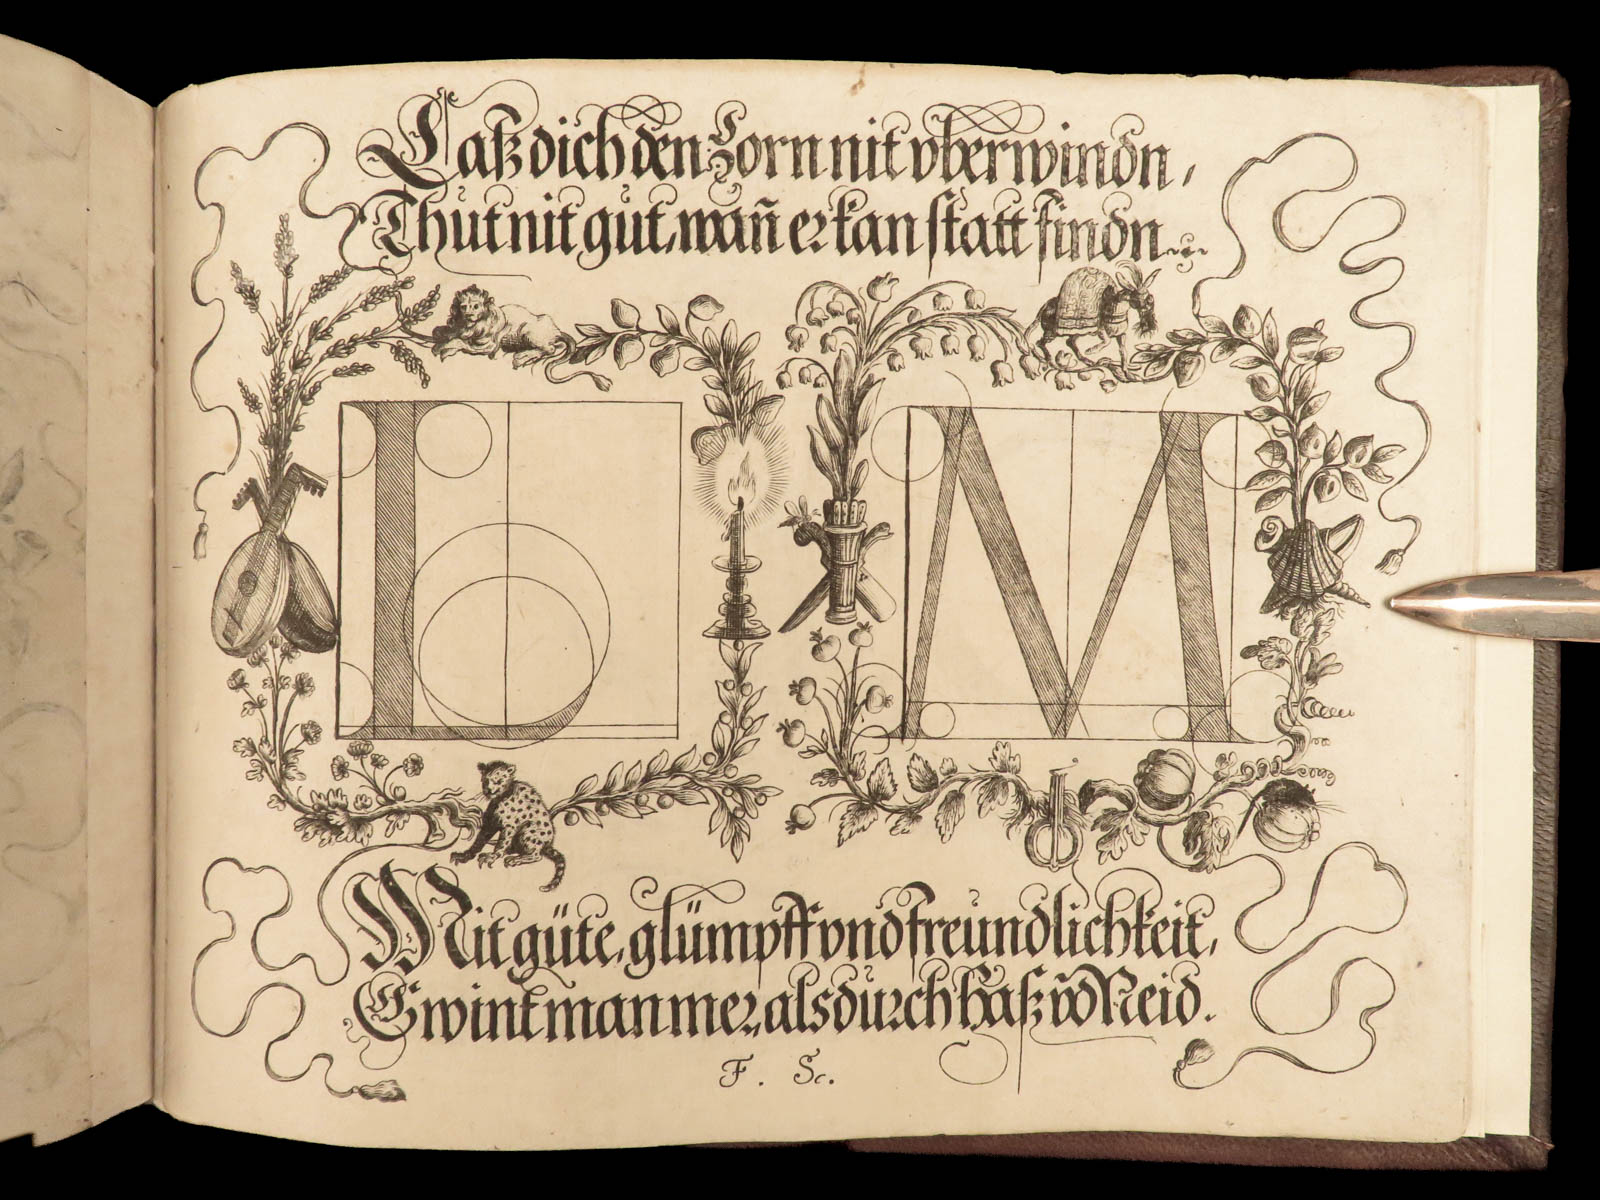 Laß dich den Zorn nit vberwindn,
Thut nit gut, wañ er kan statt findn.
L M
Mit güte, glümpff vnd freündlichkeit,
Gwint man mer, als durch Haß vñ Neid.
F. Sc.